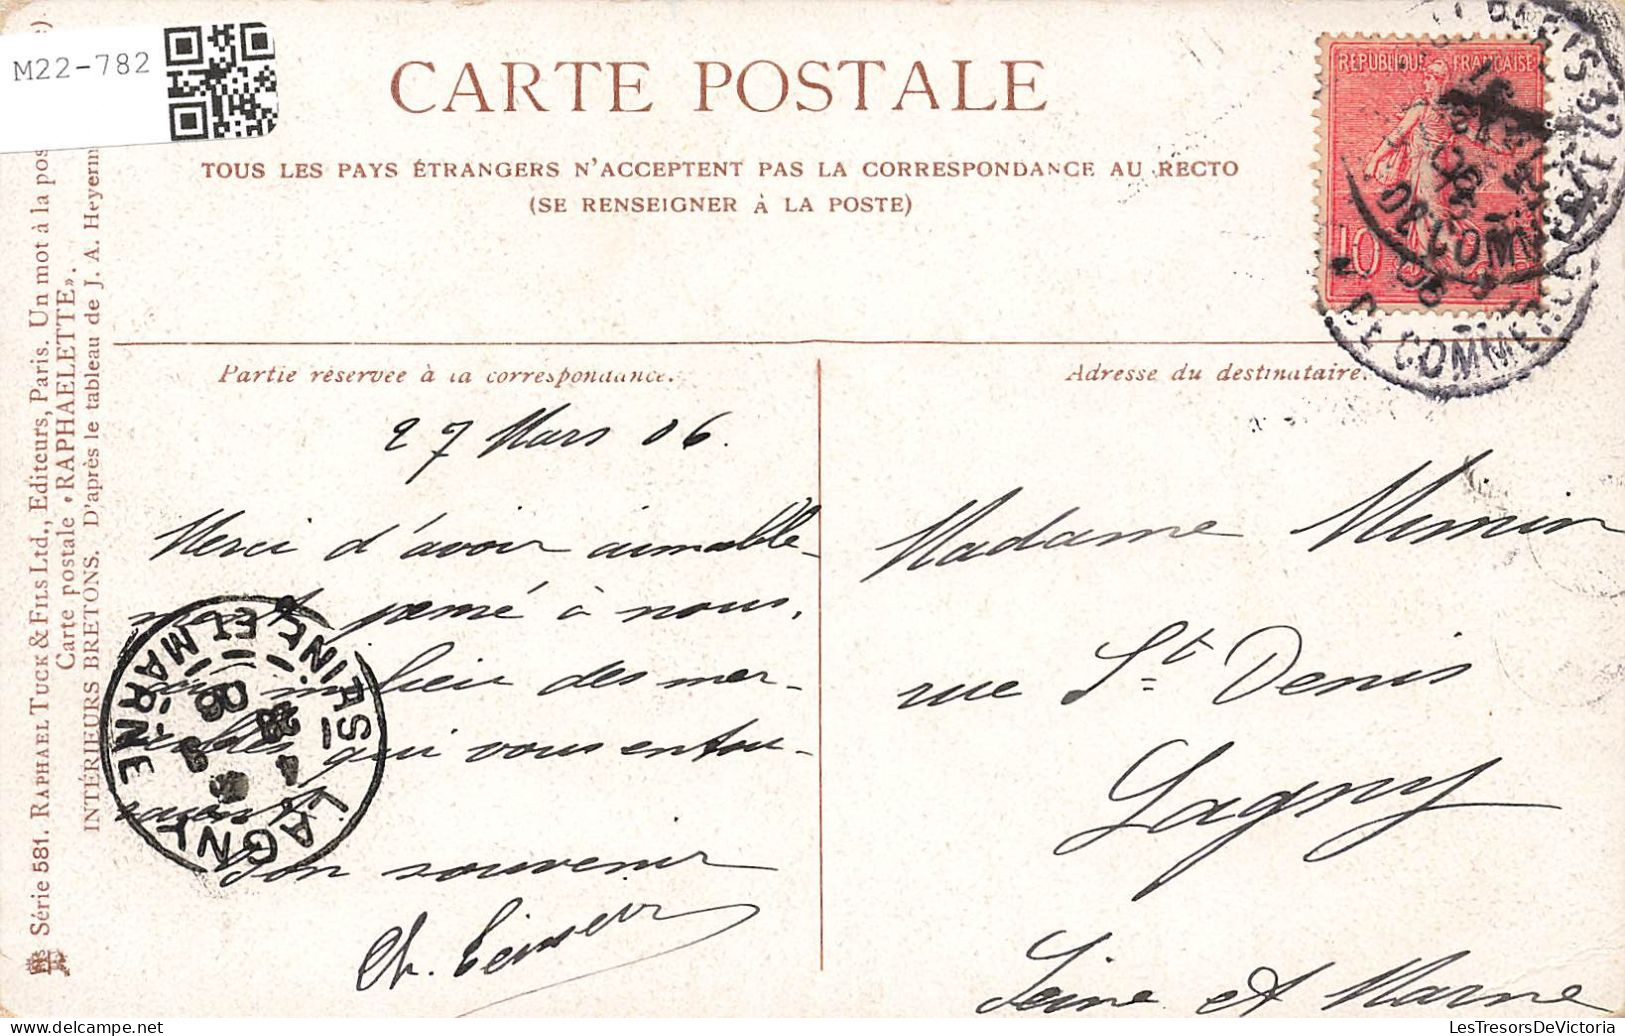 M22-782
CARTE POSTALE
TOUS LES PAYS ÉTRANGERS N'ACCEPTENT PAS LA CORRESPONDANCE AU RECTO
(SE RENSEIGNER À LA POSTE)
REPUBLIQUE FRANÇAISE
10
Série 581. RAPHAEL TUCK & FILS LTD., Editeurs, Paris. Un mot à la pos
Carte postale «RAPHAELETTE».
INTÉRIEURS BRETONS. D'après le tableau de J. A. Heyerm
Partie réservée à la correspondance.
27 Mars 06.
Merci d'avoir aimable-
ment pensé à nous,
au milieu des mer-
veilles qui vous entou-
raient
Bon souvenir
Ch.
LAGNY
SEINE ET MARNE
Adresse du destinataire.
Madame
rue St Denis
Lagny
Seine et Marne
DE COMMERCE
LesTresorsDeVictoria